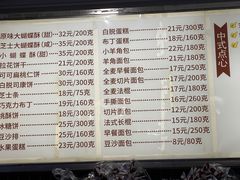 原味大蝴蝶酥(甜)—35元/200克
芝士大蝴蝶酥(咸)—35元/200克
小蝴蝶酥(甜)—32元/200克
拉花饼干—25元/200克
可可扁桃仁饼—30元/200克
白脱司康饼—30元/200克
芝士条—18元/175克
巧克力布丁—18元/160克
桃酥饼—18元/200克
冰糖饼—18元/200克
豆沙排—25元/200克
水果蛋糕—23元/300克
白脱蛋糕—21元/300克
布丁蛋糕—18元/160克
小羊角面包—20元/160克
羊角面包—20元/160克
全麦早餐面包—15元/300克
全麦切片面包—22元/500克
全麦法棍—17元/300克
手撕面包—16元/250克
切片面包—22元/500克
法式长棍—15元/300克
早餐面包—15元/250克
豆沙面包—8元/80克
中式点心